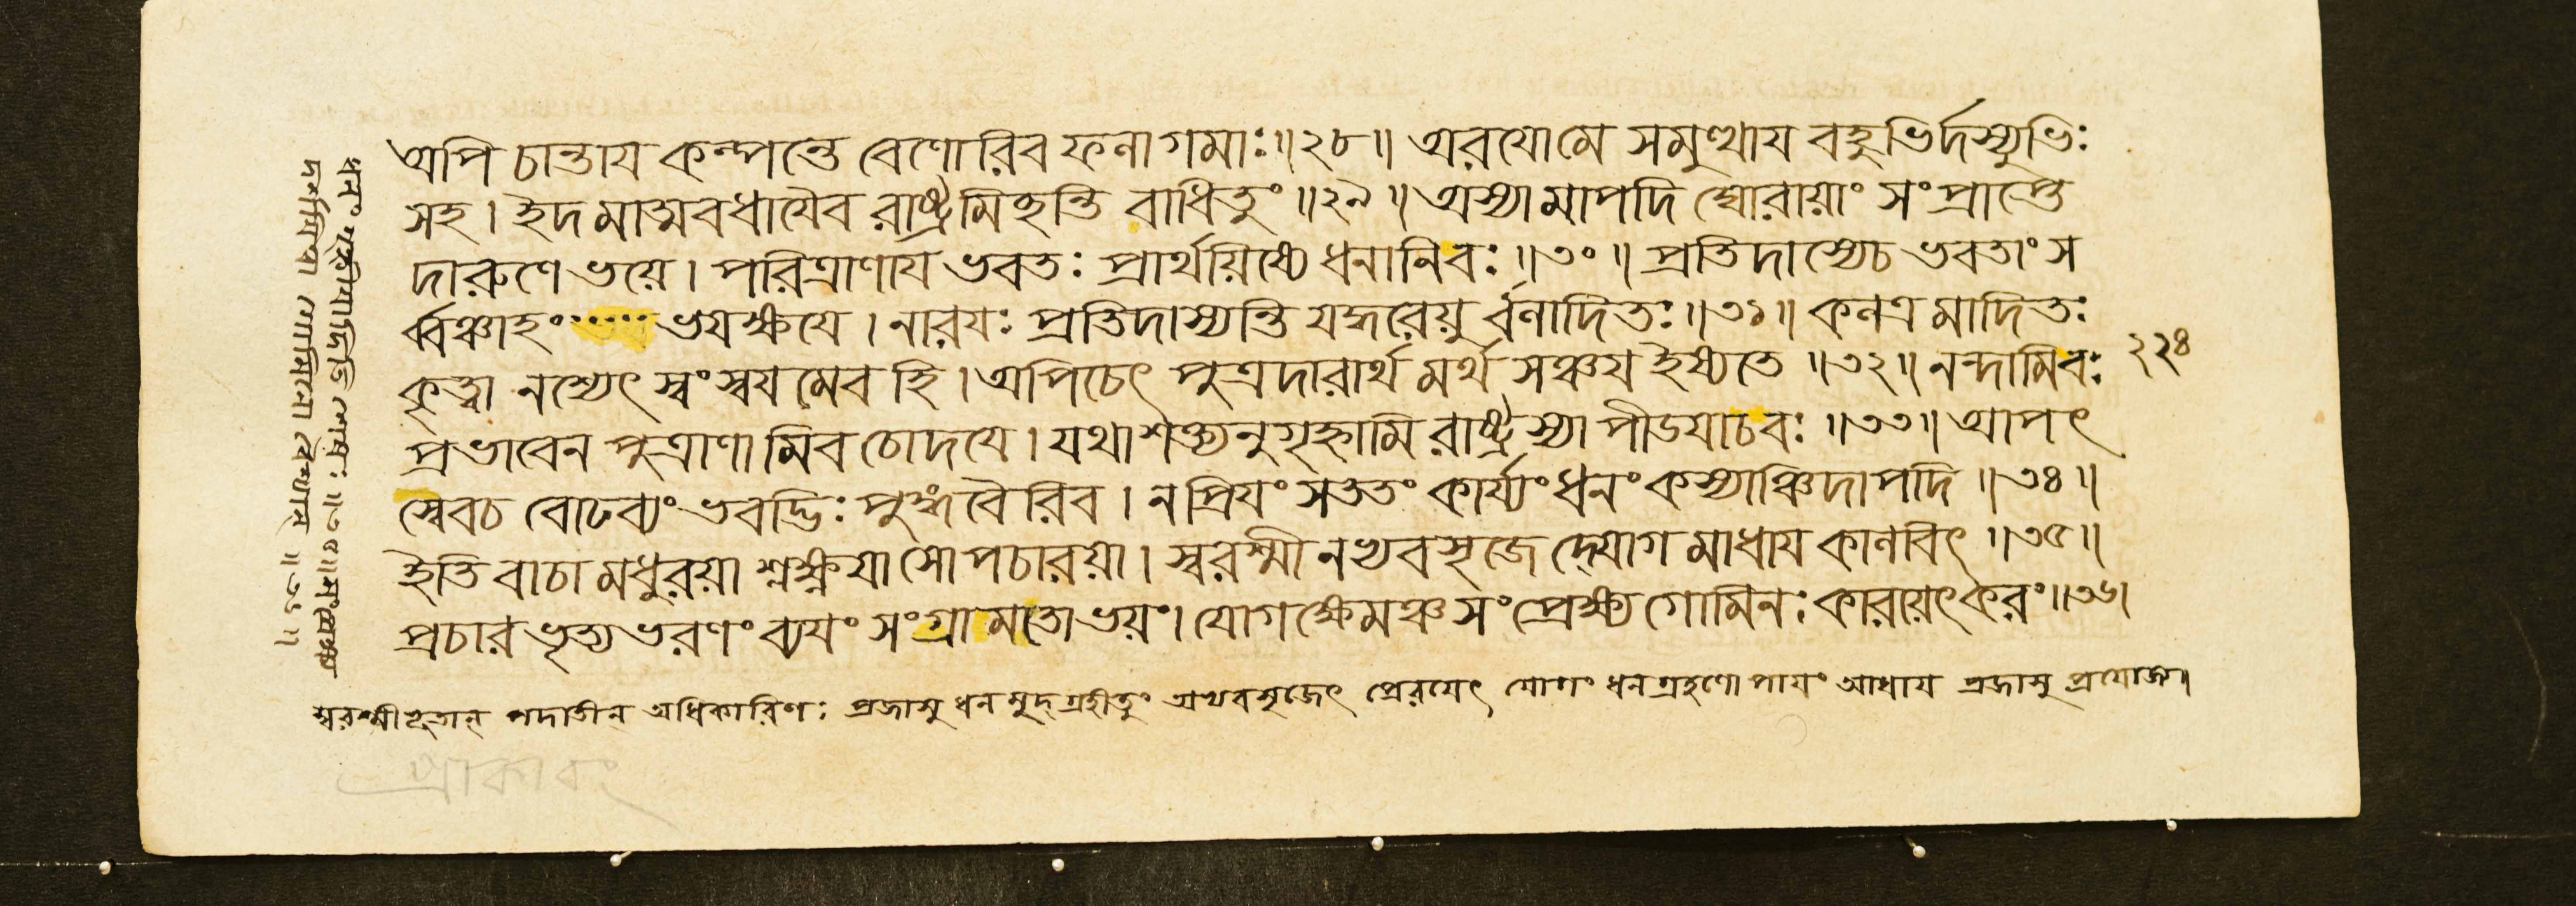 অপি চান্তায কল্পন্তে বেণোরিব ফলাগমাঃ॥২৮॥ অরযোমে সমুত্থায বহুভির্দস্যুভিঃ
সহ। ইদমাত্মবধাযৈব রাষ্ট্রমিছন্তি বাধিতুং॥২৯॥ অস্যামাপদি ঘোরায়াং সংপ্রাপ্তে
দারুণে ভয়ে। পরিত্রাণায ভবতঃ প্রার্থয়িষ্যে ধনানিবঃ॥৩০॥ প্রতিদাস্যেচ ভবতাং স
র্ব্বঞ্চাহং ভযক্ষযে। নারযঃ প্রতিদাস্যন্তি যদ্ধরেয়ু র্বলাদিতঃ॥৩১॥ কলত্রমাদিতঃ
কৃত্বা নশ্যেৎ স্বংস্বযমেব হি। অপিচেৎ পুত্রদারার্থমর্থসঞ্চয ইষ্যতে॥৩২॥ নন্দামিবঃ
প্রভাবেন পুত্রাণামিব চোদযে। যথাশক্ত্যনুগৃহ্নামি রাষ্ট্রস্যাপীডযাচবঃ॥৩৩॥ আপৎ
স্বেবচ বোঢব্যং ভবদ্ভিঃ পুঙ্গবৈরিব। নপ্রিযং সততং কার্য্যং ধনং কস্যাঞ্চিদাপদি॥৩৪॥
ইতি বাচা মধুরয়া শ্লক্ষ্ণযা সোপচারয়া। স্বরশ্মীনভ্যবসৃজেদ্যোগমাধায কালবিৎ॥৩৫॥
প্রচারং ভৃত্যভরণং ব্যযং সংগ্রামতো ভয়ং। যোগক্ষেমঞ্চ সংপ্রেক্ষ্য গোমিনঃ কারয়েৎকরং॥৩৬॥
২২৪
স্বরশ্মীভূতান্ পদাতীন্ অধিকারিণঃ প্রজাসু ধনমুদ্গ্রহীতুং অভ্যবসৃজেৎ প্রেরযেৎ যোগং ধনগ্রহণোপাযং আধায প্রজাসু প্রযোজ্য॥